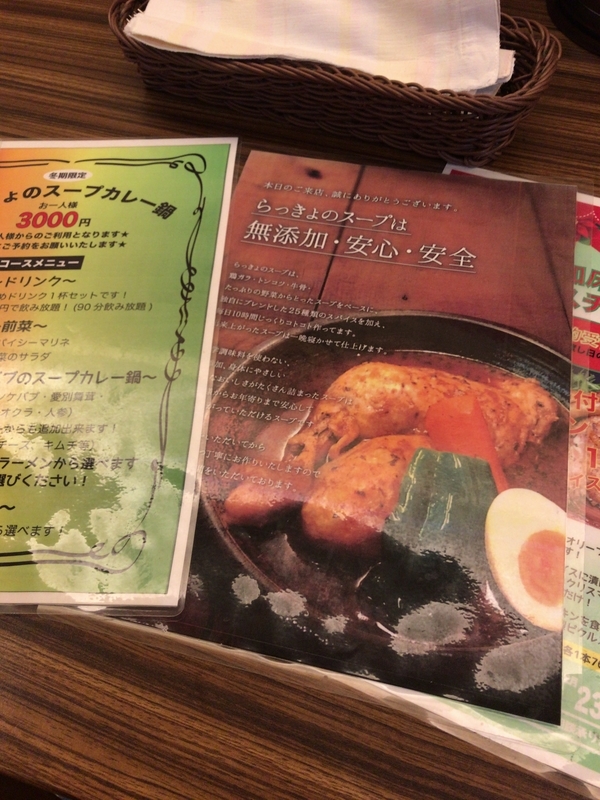 冬期限定
ょのスープカレー鍋
お一人様
3000円
人様からのご利用となります★
ご予約をお願いいたします★
コースメニュー
ドリンク〜
めドリンク1杯セットです!
円で飲み放題!(90分飲み放題)
前菜〜
パイシーマリネ
菜のサラダ
プのスープカレー鍋〜
ンケバブ・愛別舞茸・
オクラ・人参)
からも追加出来ます!
チーズ、キムチ等)
ラーメンから選べます
選びください!
〜
ら選べます!
本日のご来店、誠にありがとうございます。
らっきょのスープは
無添加・安心・安全
らっきょのスープは、
鶏ガラ・トンコツ・牛骨・
たっぷりの野菜からとったスープをベースに、
独自にブレンドした25種類のスパイスを加え、
毎日10時間じっくりコトコト作ってます。
来上がったスープは一晩寝かせて仕上げます。
調味料を使わない、
加、身体にやさしい
おいしさがたくさん詰まったスープは、
からお年寄りまで安心し
っていただけるスープです
いただいてから
丁寧にお作りいたしますので
をいただいております。
付
ン
オリー
す!
イスに漬
クリス
だけ!
キンを食
ピクル
各1本
23